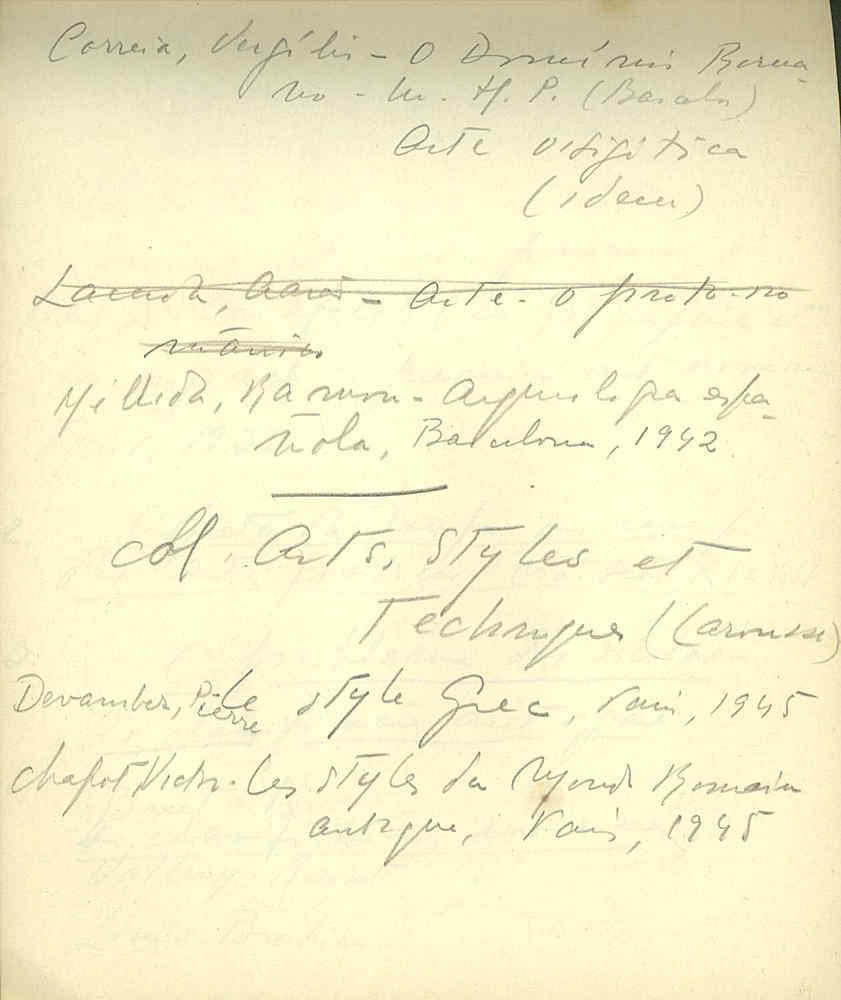 Correia, Vergílio - O Domínio Roma-
no - in H. P. (Barcelos)
Arte visigótica
(idem)
Lacerda, Aarão - Arte - O proto-ro
mânico
Mélida, Ramon - Arqueologia espa-
ñola, Barcelona, 1942
Coll. Arts, Styles et
Techniques (Larousse)
Devambez, Pierre Le style Grec, Paris, 1945
Chapot, Victor - Les styles du Monde Romain
antique, Paris, 1945